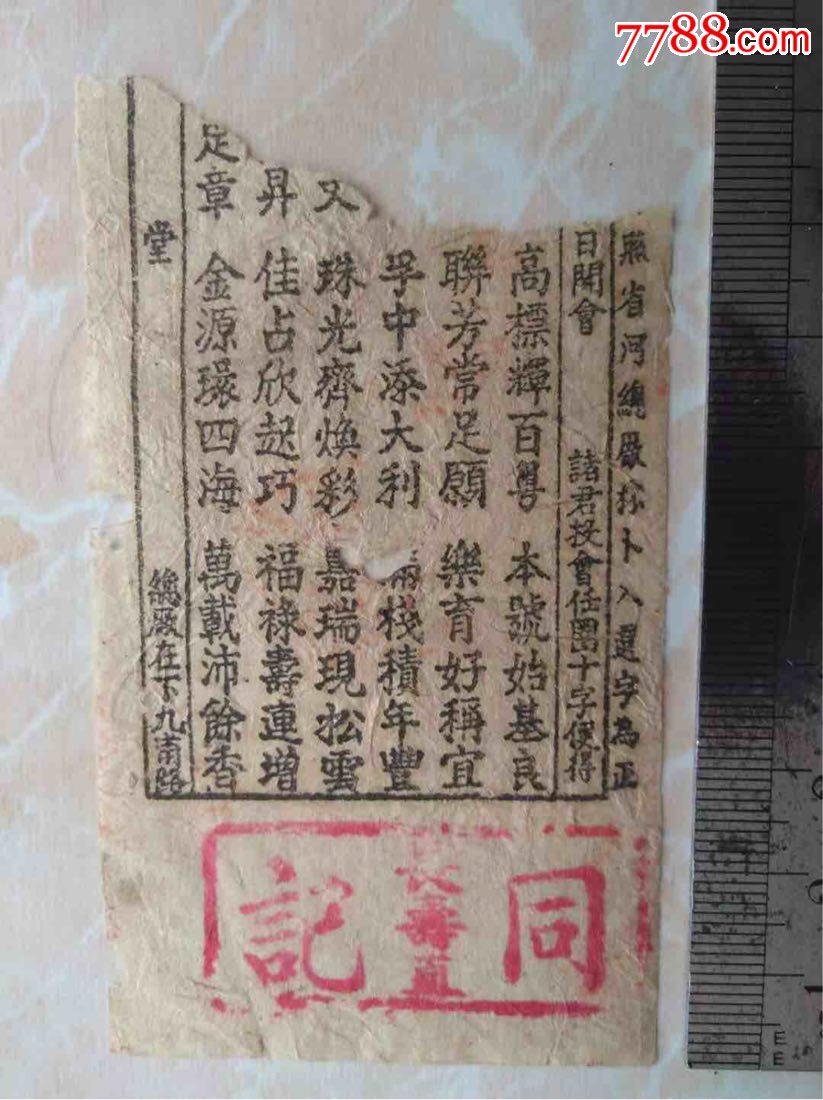 7788.com
照省河總廠揭卜入選字為正
日開會 諸君投會任圈十字便得
高標輝百粵 本號始基良
聯芳常足願 樂育好稱宜
孚中添大利 棧積年豐
又 珠光齊煥彩 嘉瑞現松雲
昇 佳占欣起巧 福祿壽連增
定章 金源環四海 萬載沛餘香
堂 總廠在下九甫路
同
長壽直
記